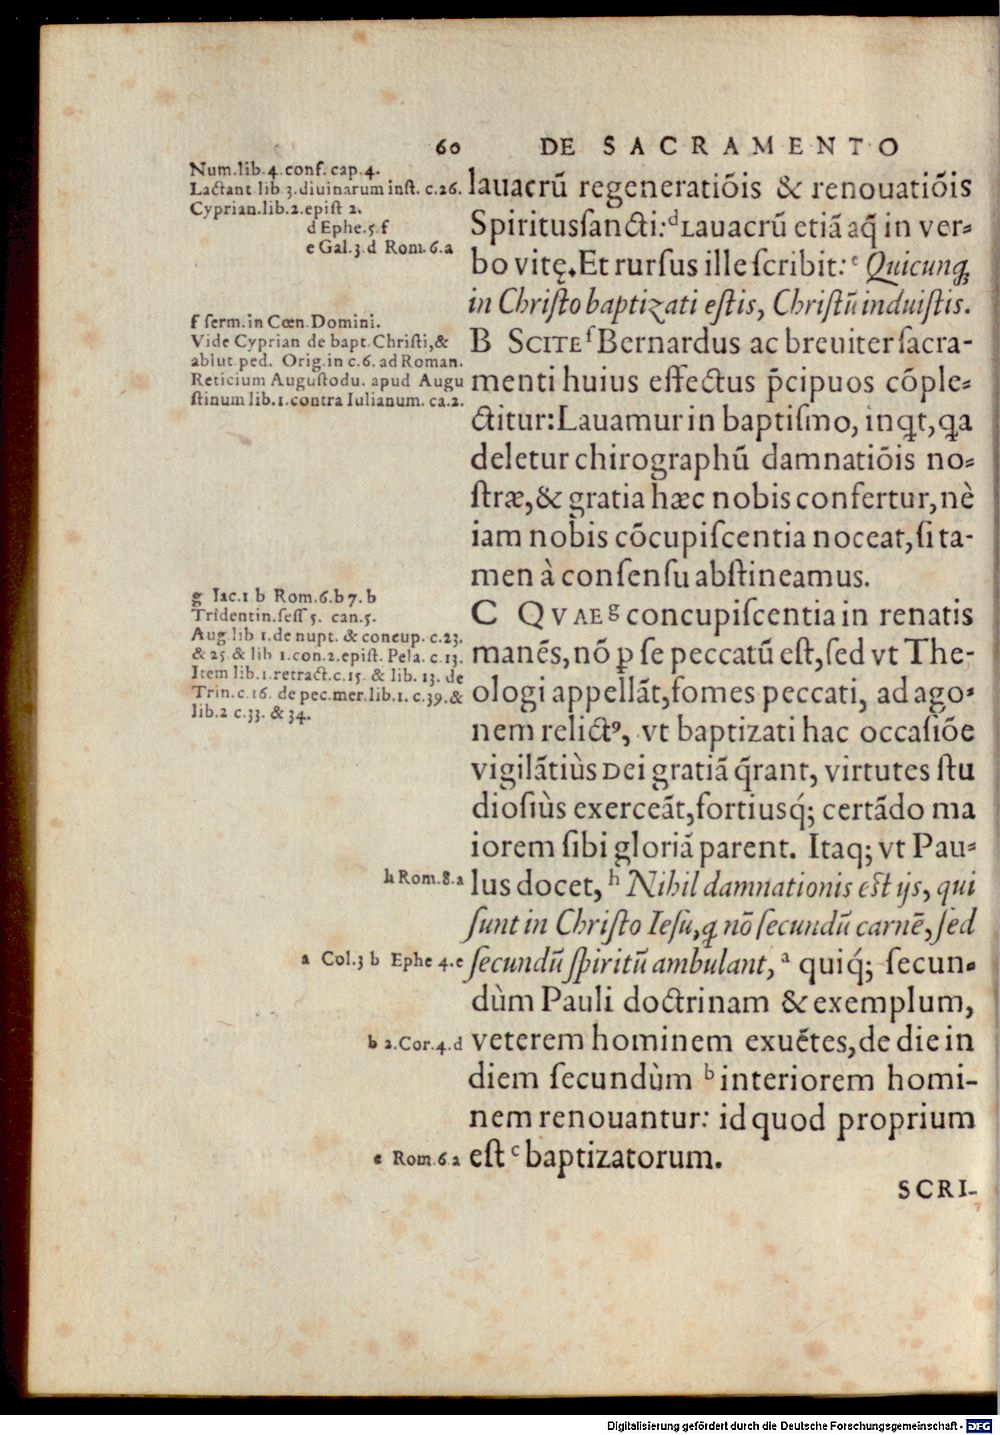 60 DE SACRAMENTO
Num.lib.4.conf.cap.4.
Lactant lib 3.diuinarum inst. c.26.
Cyprian.lib.2.epist 2.
d Ephe.5.f
e Gal.3.d Rom.6.a
f serm.in Cœn.Domini.
Vide Cyprian de bapt.Christi,&
ablut.ped. Orig.in c.6. ad Roman.
Reticium Augustodu. apud Augu
stinum lib.1.contra Iulianum. ca.2.
g Iac.1 b Rom.6.b 7.b
Tridentin.sess 5. can.5.
Aug lib 1.de nupt. & concup. c.23.
& 25 & lib 1.con.2.epist. Pela. c.13.
Item lib.1.retract.c.15. & lib. 13. de
Trin.c.16. de pec.mer.lib.1. c.39.&
lib.2 c.33. & 34.
h Rom.8.a
a Col.3 b Ephe 4.e
b 2.Cor.4.d
c Rom.6 a
lauacrũ regeneratiõis & renouatiõis
Spiritussancti: ᵈ Lauacrũ etiã aq̃ in ver-
bo vitę. Et rursus ille scribit: ᵉ Quicunq;
in Christo baptizati estis, Christũ induistis.
B SCITE ᶠ Bernardus ac breuiter sacra-
menti huius effectus p̃cipuos cõple-
ctitur: Lauamur in baptismo, inqt, qa
deletur chirographũ damnatiõis no-
stræ, & gratia hæc nobis confertur, nè
iam nobis cõcupiscentia noceat, si ta-
men à consensu abstineamus.
C QVAE ᵍ concupiscentia in renatis
manẽs, nõ ꝑ se peccatũ est, sed vt The-
ologi appellãt, fomes peccati, ad ago-
nem relictꝰ, vt baptizati hac occasiõe
vigilãtiùs DEI gratiã q̃rant, virtutes stu
diosiùs exerceãt, fortiusq́; certãdo ma
iorem sibi gloriã parent. Itaq; vt Pau-
lus docet, ʰ Nihil damnationis est ijs, qui
sunt in Christo Iesu, q nõ secundũ carnẽ, sed
secundũ spiritũ ambulant, ᵃ quiq́; secun-
dùm Pauli doctrinam & exemplum,
veterem hominem exuẽtes, de die in
diem secundùm ᵇ interiorem homi-
nem renouantur: id quod proprium
est ᶜ baptizatorum.
SCRI-
Digitalisierung gefördert durch die Deutsche Forschungsgemeinschaft - DFG